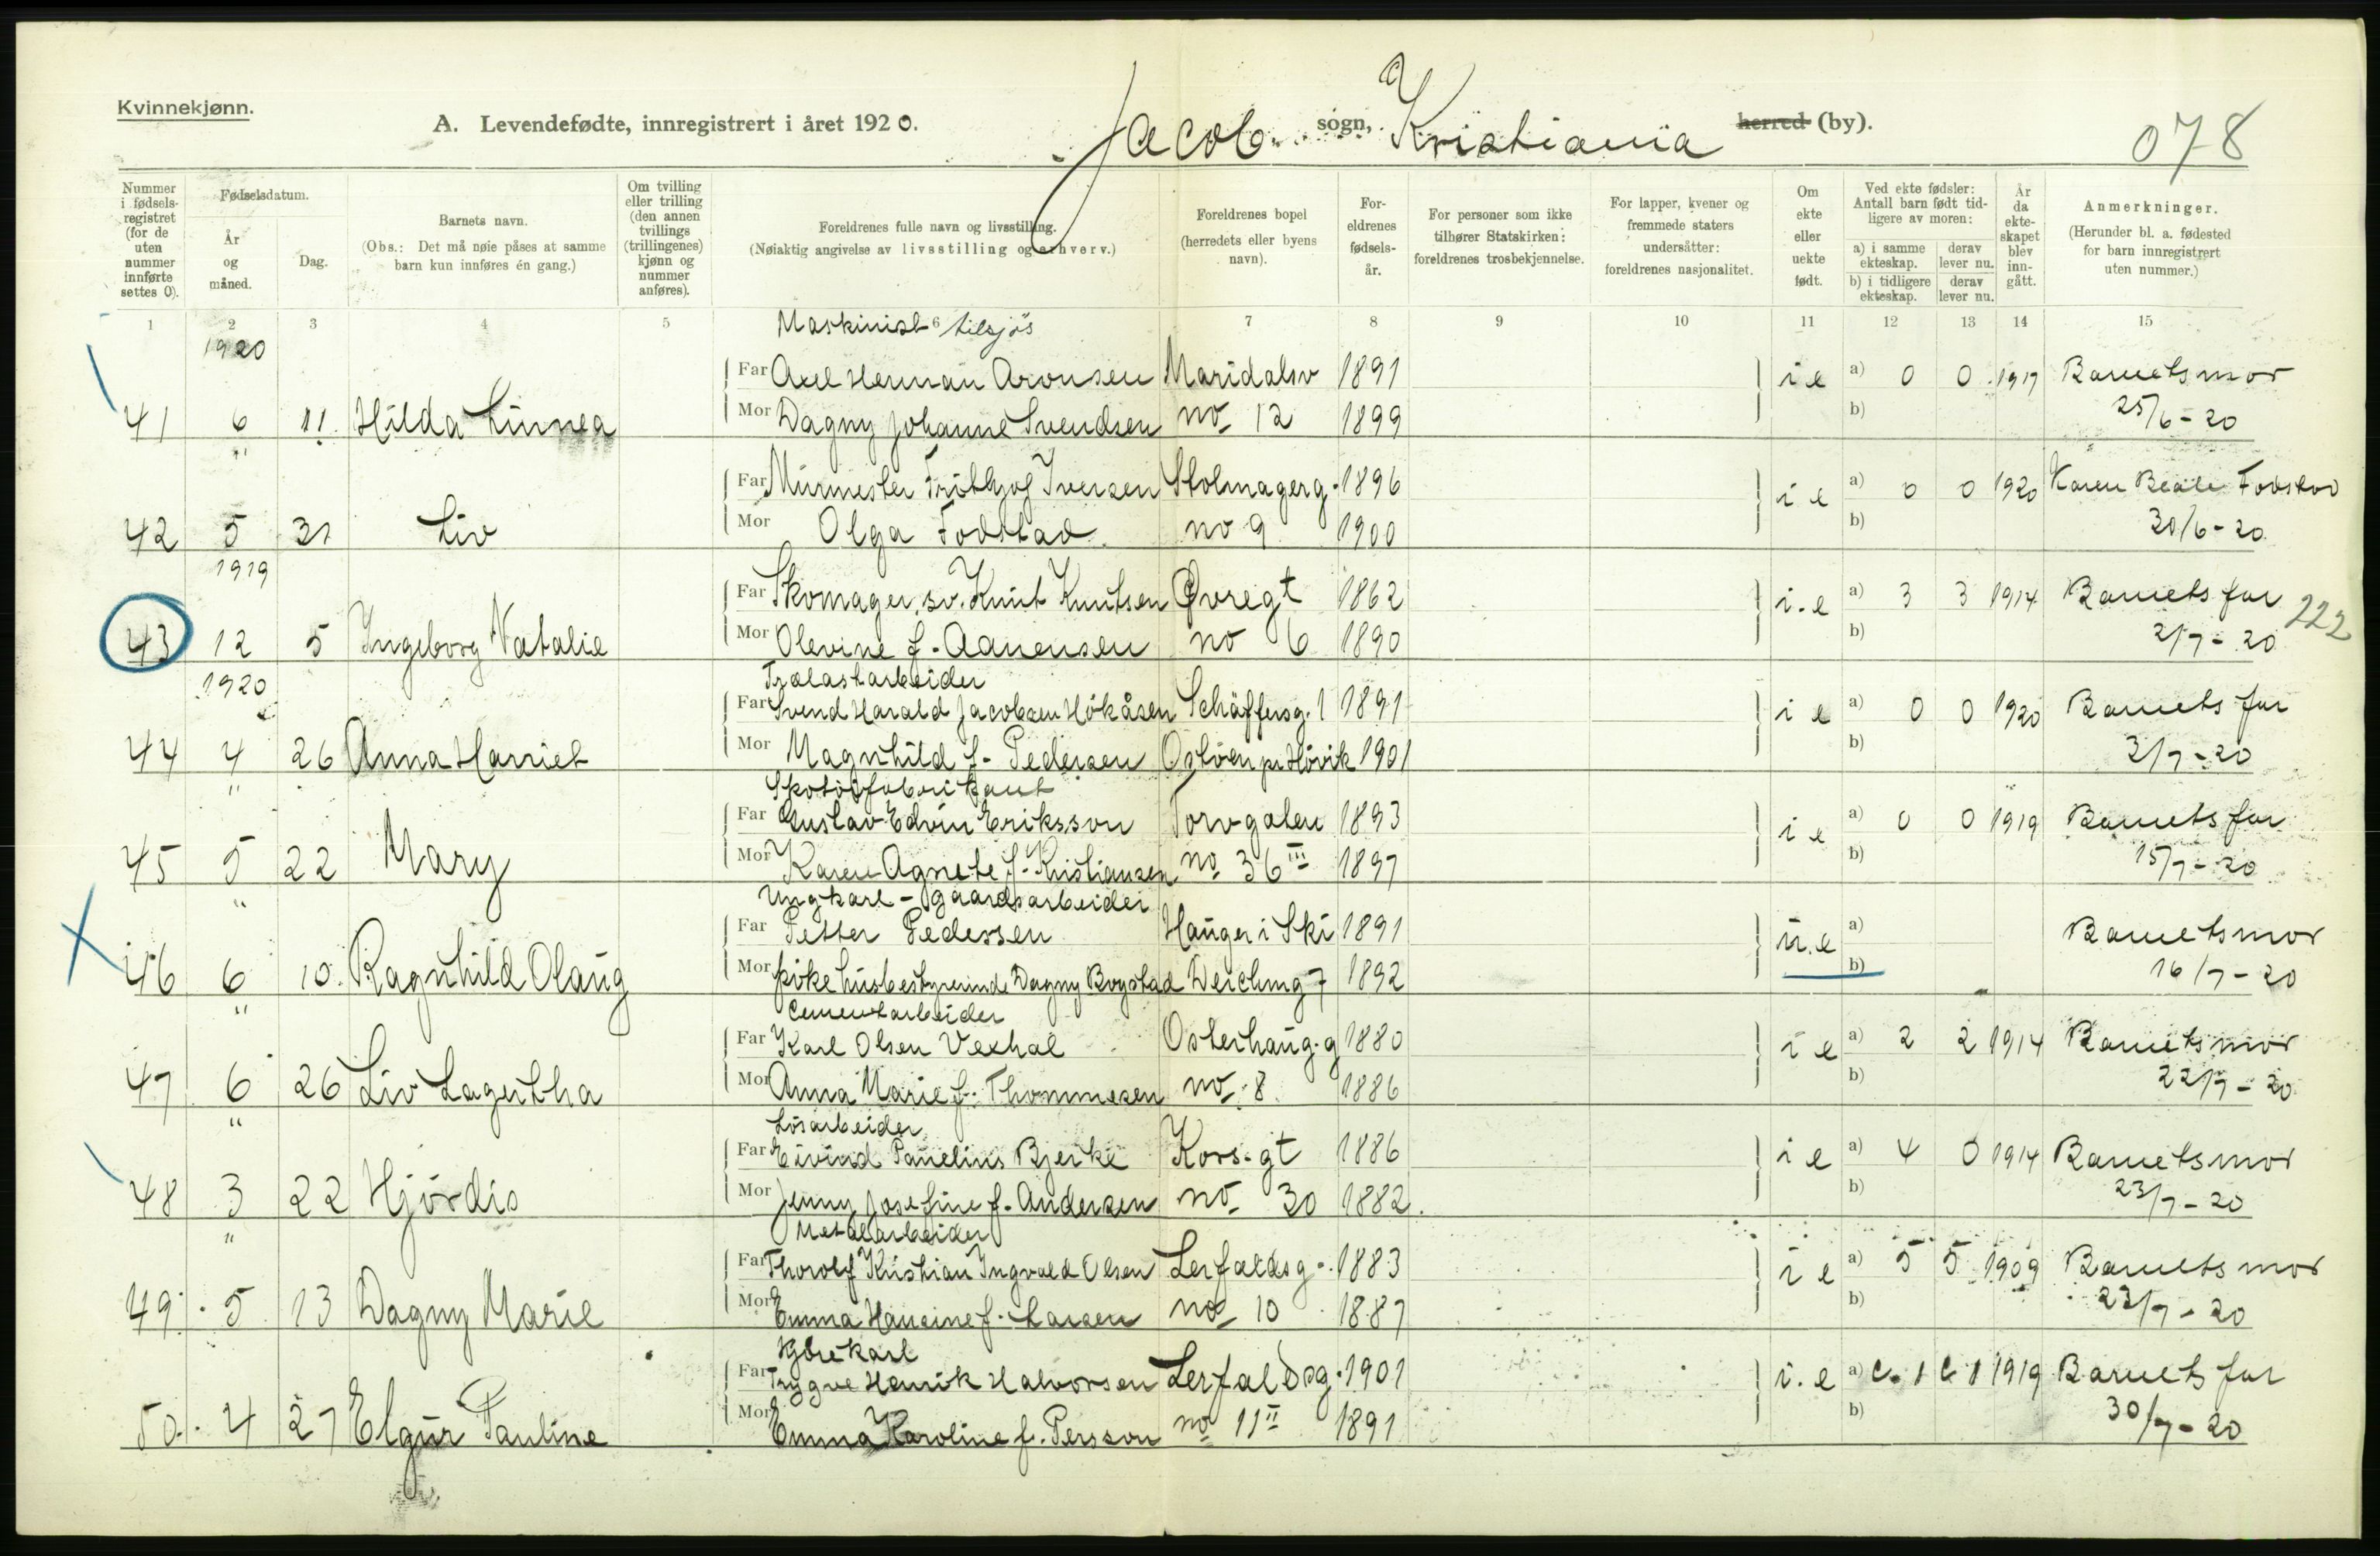 Kvinnekjønn.
A. Levendefødte, innregistrert i året 1920. Jacob sogn, Kristiania herred (by). 078
Nummer i fødsels-registret (for de uten nummer innførte settes 0).
Fødselsdatum.
År og måned.
Dag.
Barnets navn.
(Obs.: Det må nøie påses at samme barn kun innføres én gang.)
Om tvilling eller trilling (den annen tvillings (trillingenes) kjønn og nummer anføres).
Foreldrenes fulle navn og livsstilling.
(Nøiaktig angivelse av livsstilling og erhverv.)
Foreldrenes bopel (herredets eller byens navn).
For-eldrenes fødsels-år.
For personer som ikke tilhører Statskirken: foreldrenes trosbekjennelse.
For lapper, kvener og fremmede staters undersåtter: foreldrenes nasjonalitet.
Om ekte eller uekte født.
Ved ekte fødsler: Antall barn født tid-ligere av moren:
a) i samme ekteskap. derav lever nu.
b) i tidligere ekteskap. derav lever nu.
År da ekte-skapet blev inn-gått.
Anmerkninger.
(Herunder bl. a. fødested for barn innregistrert uten nummer.)
1 2 3 4 5 6 7 8 9 10 11 12 13 14 15
1920 Maskinist tilsjøs
Far Axel Herman Aronsen Maridalsv 1891 i e a) 0 0 1917 Barnets mor
41 6 11. Hilda Linnea Mor Dagny Johanne Svendsen no 12 1899 b) 25/6 - 20
"
Far Murmester Frithjof Iversen Stolmagerg. 1896 i e a) 0 0 1920 Karen Beate Fodstad
42 5 31 Liv Mor Olga Fodstad no 9 1900 b) 30/6 - 20
1919
Far Skomager.sv. Knut Knutsen Øvregt 1862 i.e a) 3 3 1914 Barnets far 222
43 12 5 Ingeborg Natalie Mor Olevine f. Aanensen no 6 1890 b) 2/7 - 20
1920 Trælastarbeider
Far Svend Harald Jacobsen Hökåsen Schäffersg. 1 1891 i e a) 0 0 1920 Barnets far
44 4 26 Anna Harriet Mor Magnhild f. Pedersen Östöen pr Hövik 1901 b) 3/7 - 20
" Skotöifabrikant
Far Gustav Edvin Eriksson Torvgaten 1893 i e a) 0 0 1919 Barnets far
45 5 22 Mary Mor Karen Agnete f. Kristiansen no 36 III 1897 b) 15/7 - 20
" Ungkarl - gaardsarbeider
Far Petter Pedersen Hauger i Ski 1891 u.e a) Barnets mor
46 6 10. Ragnhild Olaug Mor pike husbestyrerinde Dagny Bogstad Deichmg 7 1892 b) 16/7 - 20
" Cementarbeider
Far Karl Olsen Vexhal Osterhaug.g 1880 i e a) 2 2 1914 Barnets mor
47 6 26 Liv Lagertha Mor Anna Marie f. Thommesen no 8. 1886 b) 22/7 - 20
" Lösarbeider
Far Eivind Paulinus Bjerke Kors.gt 1886 i e a) 4 0 1914 Barnets mor
48 3 22 Hjördis Mor Jenny Josefine f. Andersen no 30 1882. b) 23/7 - 20
" Metalarbeider
Far Thorolf Kristian Ingvald Olsen Lerfaldsg. 1883 i e a) 5 5 1909 Barnets mor
49. 5 13 Dagny Marie Mor Emma Hansine f. Larsen no 10 1887 b) 23/7 - 20
Kjörekarl
Far Trygve Henrik Halvorsen Lerfaldsg. 1901 i.e a) c. 1 c 1 1919 Barnets far
50. 4 27 Elgur Pauline Mor Emma Karoline f. Persson no 11 II 1891 b) 30/7 - 20